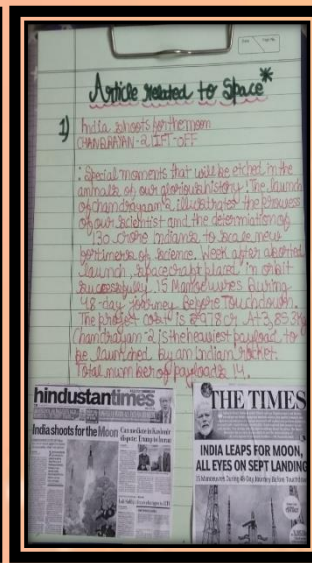 Article related to Space*
1) India shoots for the moon
CHANDRAYAN-2 LIFT-OFF
: Special moments that will be etched in the
annals of our glorious history! The launch
of chandrayaan 2 illustrates the prowess
of our scientist and the determination of
130 crore indians to scale new
of science. Week after aborted
launch, spacecraft placed in orbit
successfully. 15 Manoeuvres During
48-day Journey Before Touchdown.
The project cost is ₹978cr. At 3,85
Chandrayaan-2 is the heaviest payload to
be launched by an Indian rocket.
Total number of payloads 14.
hindustantimes
India shoots for the Moon
Can mediate in Kashmir
dispute: Trump to Imran
THE TIMES
INDIA LEAPS FOR MOON,
ALL EYES ON SEPT LANDING
15 Manoeuvres During 48-Day Journey Before Touch